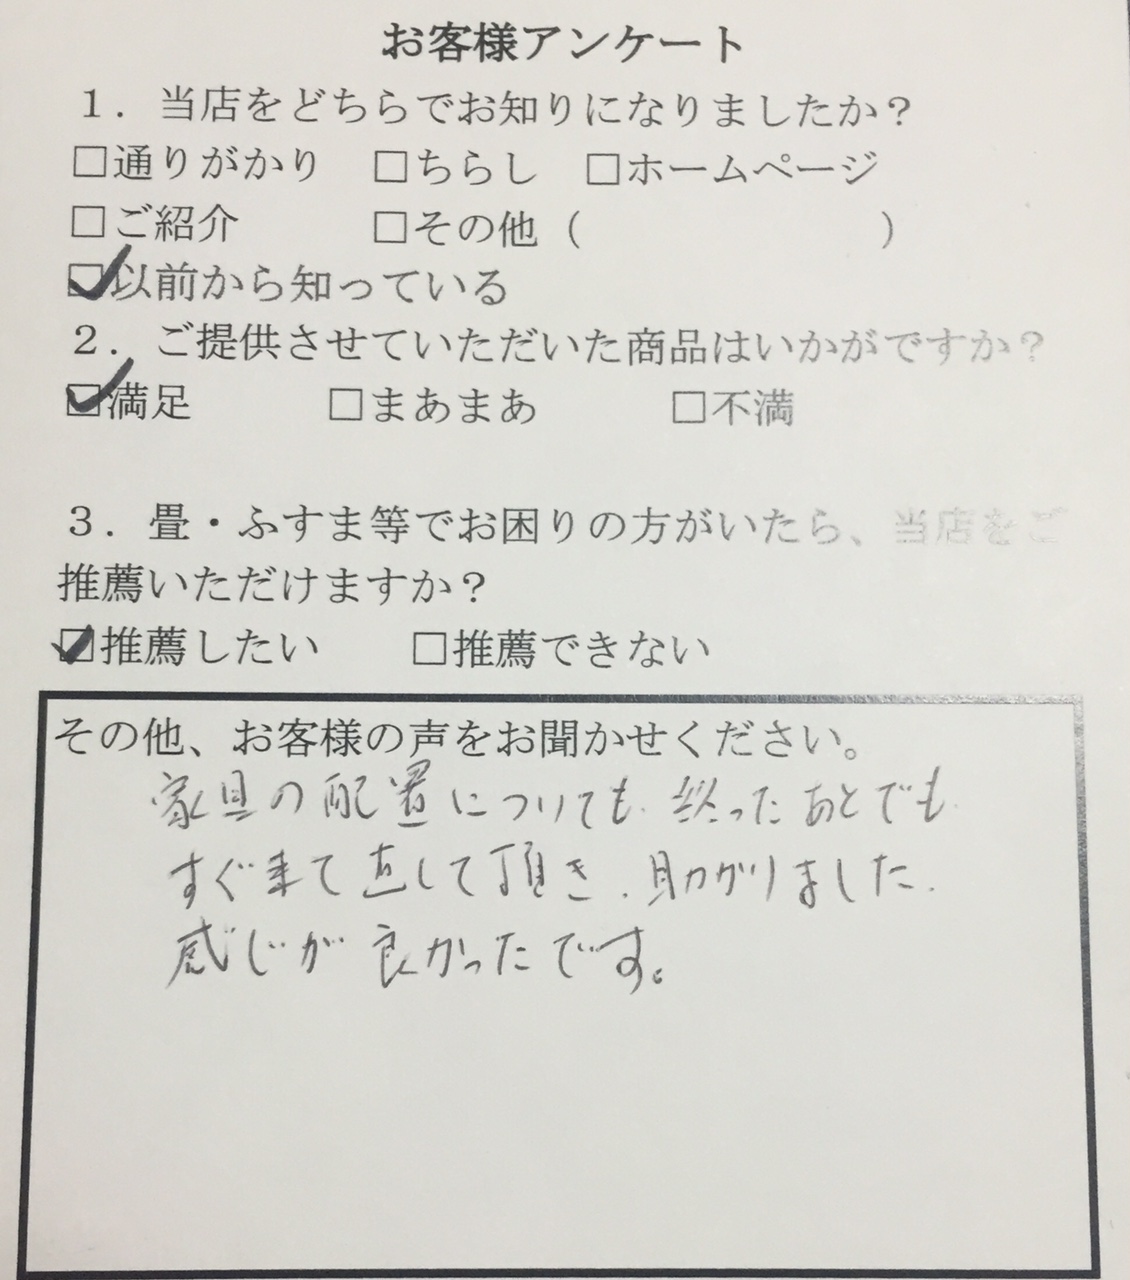 お客様アンケート
１．当店をどちらでお知りになりましたか？
□通りがかり　□ちらし　□ホームページ
□ご紹介　　　□その他（　　　　　　　）
☑以前から知っている
２．ご提供させていただいた商品はいかがですか？
☑満足　　　□まあまあ　　　□不満
３．畳・ふすま等でお困りの方がいたら、当店をご
推薦いただけますか？
☑推薦したい　　□推薦できない
その他、お客様の声をお聞かせください。
家具の配置についても、終ったあとでも
すぐ来て直して頂き、助かりました。
感じが良かったです。